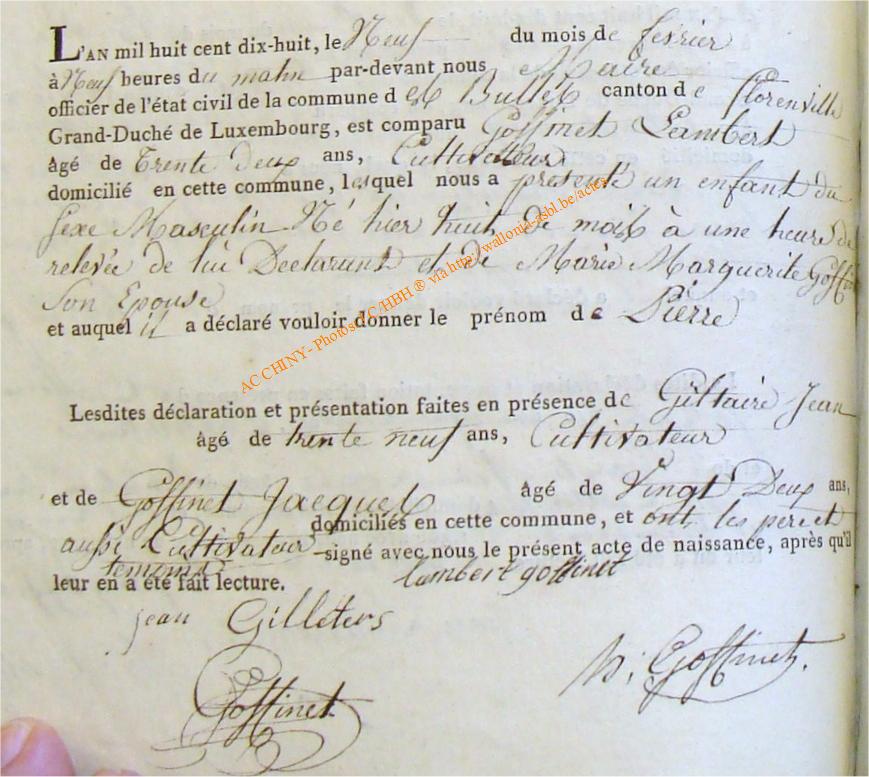 L'AN mil huit cent dix-huit, le Neuf du mois de fevrier
à Neuf heures du matin par-devant nous Maire
officier de l'état civil de la commune d es Bulles canton de florenville
Grand-Duché de Luxembourg, est comparu Goffinet Lambert
âgé de Trente deux ans, Cultivateur
domicilié en cette commune, lesquel nous a presenté un enfant du
Sexe Masculin Né hier huit de mois à une heure de
relevée de lui Declarant et de Marie Marguerite Goffin
Son Epouse
et auquel il a déclaré vouloir donner le prénom de Pierre
AC CHINY - Photos EC/HBH ® via http://wallonia-asbl.be/actes
Lesdites déclaration et présentation faites en présence de Giltaire Jean
âgé de trente neuf ans, Cultivateur
et de Goffinet Jacques âgé de Vingt Deux ans,
aussi Cultivateur domiciliés en cette commune, et ont les pere et
temoins signé avec nous le présent acte de naissance, après qu'il
leur en a été fait lecture. lambert goffinet
jean Gilleters
Goffinet
Goffinet.